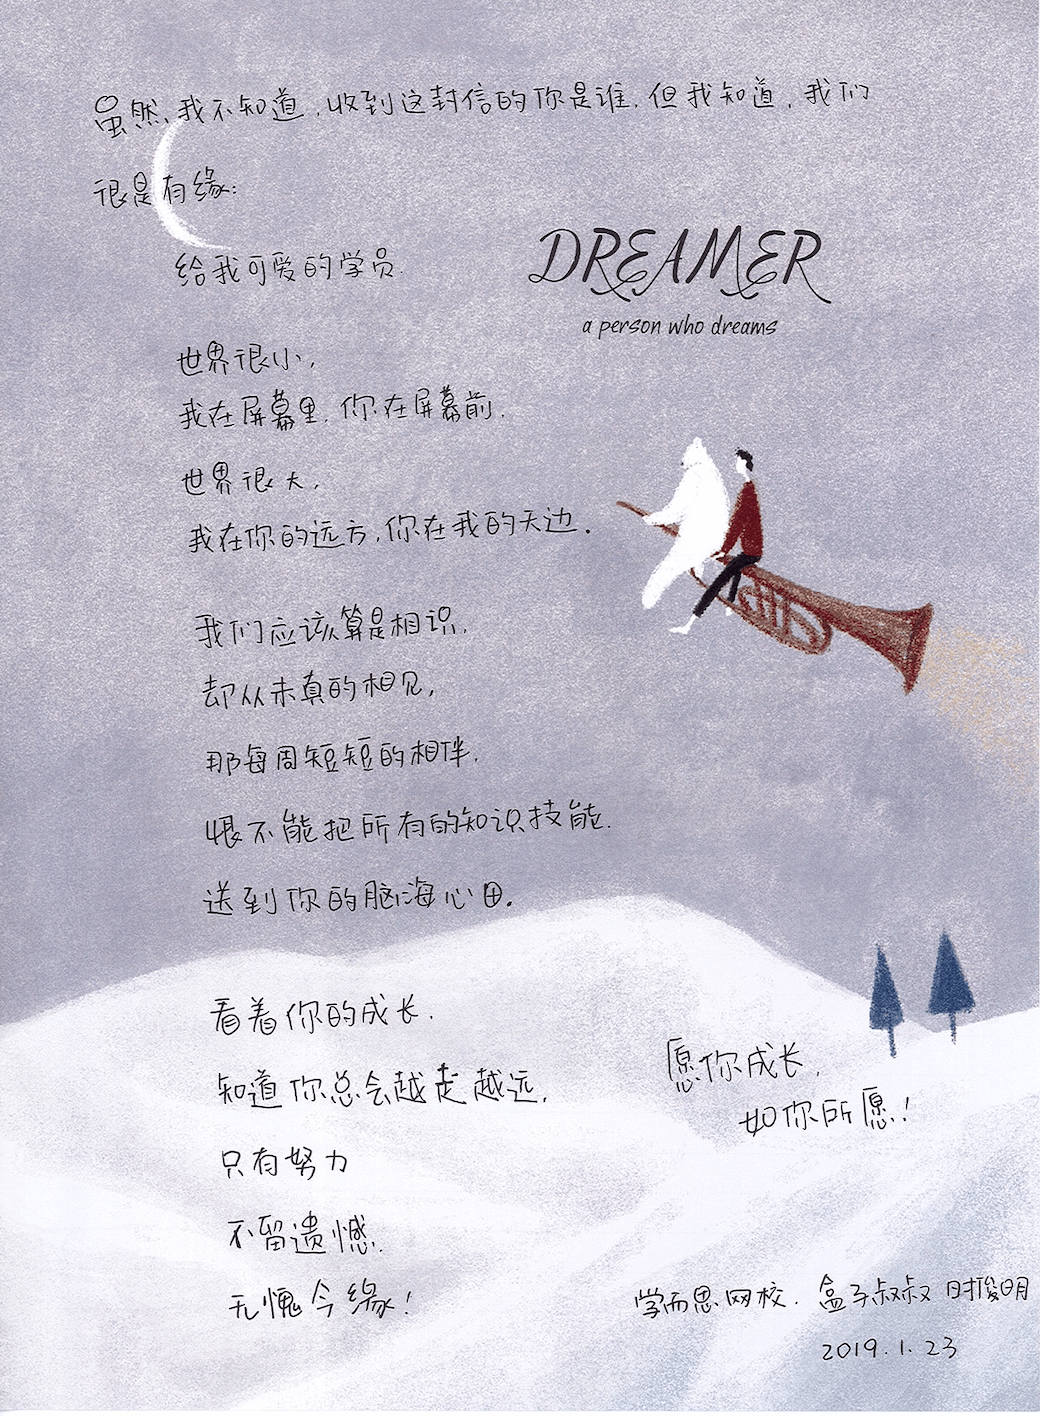 虽然,我不知道,收到这封信的你是谁,但我知道,我们
很是有缘:
给我可爱的学员.
DREAMER
a person who dreams
世界很小,
我在屏幕里,你在屏幕前.
世界很大,
我在你的远方,你在我的天边.
我们应该算是相识,
却从未真的相见,
那每周短短的相伴,
恨不能把所有的知识技能.
送到你的脑海心田.
看着你的成长.
知道你总会越走越远,
只有努力
不留遗憾.
无愧今缘!
愿你成长,
如你所愿!
学而思网校. 盒子叔叔 时俊明
2019.1.23